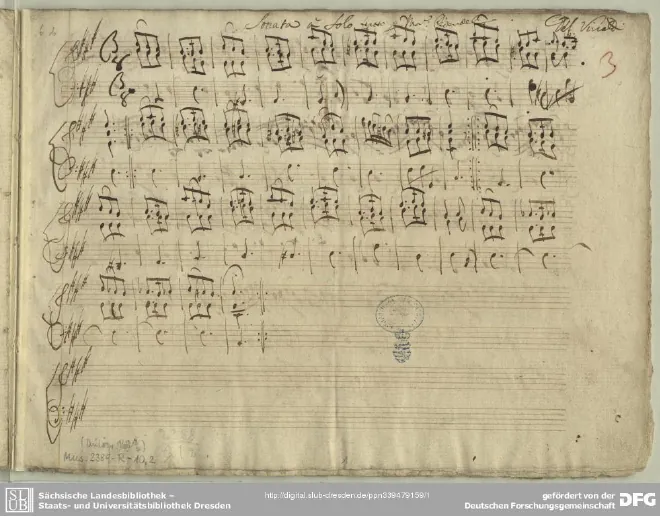 Sonata à Solo
Del Vivaldi
3
Mus. 2389-R-10,2
SLUB
Sächsische Landesbibliothek –
Staats- und Universitätsbibliothek Dresden
http://digital.slub-dresden.de/ppn339479159/1
gefördert von der
Deutschen Forschungsgemeinschaft
DFG